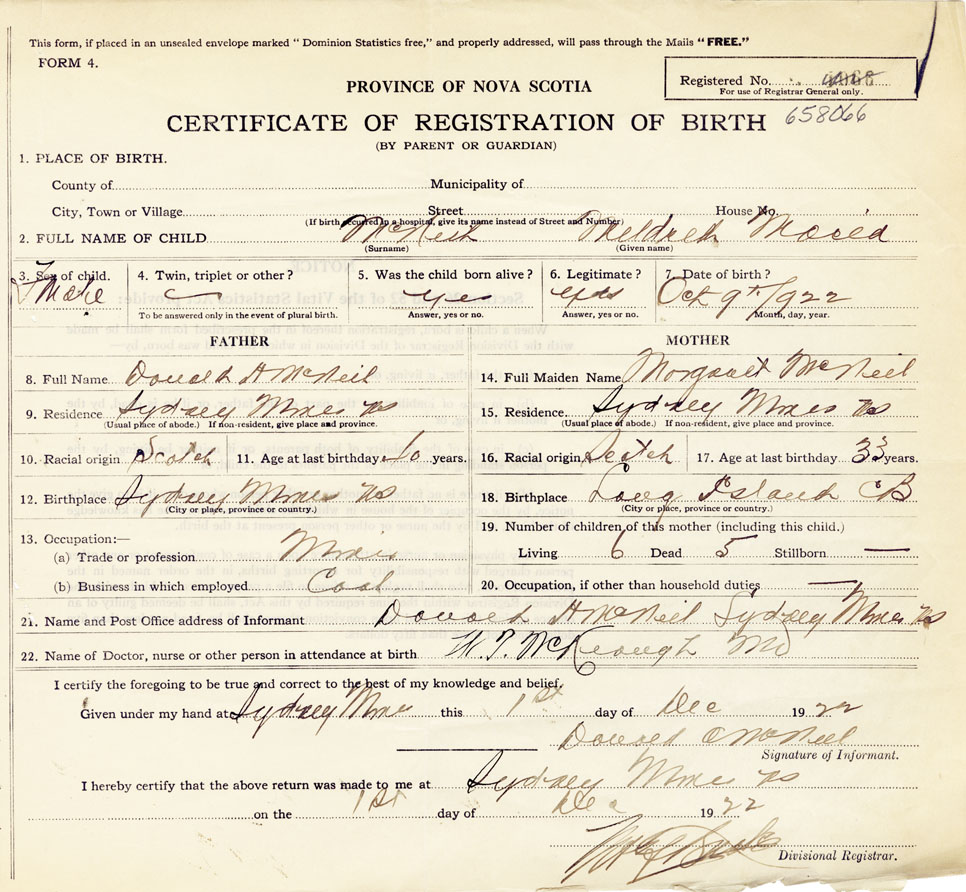 This form, if placed in an unsealed envelope marked " Dominion Statistics free," and properly addressed, will pass through the Mails "FREE."
FORM 4.
Registered No.
For use of Registrar General only.
658066
PROVINCE OF NOVA SCOTIA
CERTIFICATE OF REGISTRATION OF BIRTH
(BY PARENT OR GUARDIAN)
1. PLACE OF BIRTH.
County of Municipality of
City, Town or Village Street House No.
(If birth occurred in a hospital, give its name instead of Street and Number)
2. FULL NAME OF CHILD McNeil Mildred
(Surname) (Given name)
3. Sex of child. 4. Twin, triplet or other? 5. Was the child born alive? 6. Legitimate? 7. Date of birth?
Female — yes yes Oct 9th/1922
To be answered only in the event of plural birth. Answer, yes or no. Answer, yes or no. Month, day, year.
FATHER MOTHER
8. Full Name Donald A McNeil 14. Full Maiden Name Margaret McNeil
9. Residence Sydney Mines NS 15. Residence. Sydney Mines NS
(Usual place of abode.) If non-resident, give place and province. (Usual place of abode.) If non-resident, give place and province.
10. Racial origin Scotch 11. Age at last birthday years. 16. Racial origin Scotch 17. Age at last birthday 33 years.
12. Birthplace Sydney Mines NS 18. Birthplace Long Island CB
(City or place, province or country.) (City or place, province or country.)
13. Occupation:— 19. Number of children of this mother (including this child.)
(a) Trade or profession Living 6 Dead 5 Stillborn —
(b) Business in which employed Coal 20. Occupation, if other than household duties —
21. Name and Post Office address of Informant Donald A McNeil Sydney Mines NS
22. Name of Doctor, nurse or other person in attendance at birth McKeough MD
I certify the foregoing to be true and correct to the best of my knowledge and belief.
Given under my hand at Sydney Mines this 1st day of Dec 1922
Donald McNeil
Signature of Informant.
I hereby certify that the above return was made to me at Sydney Mines NS
on the 1st day of Dec 1922
Divisional Registrar.